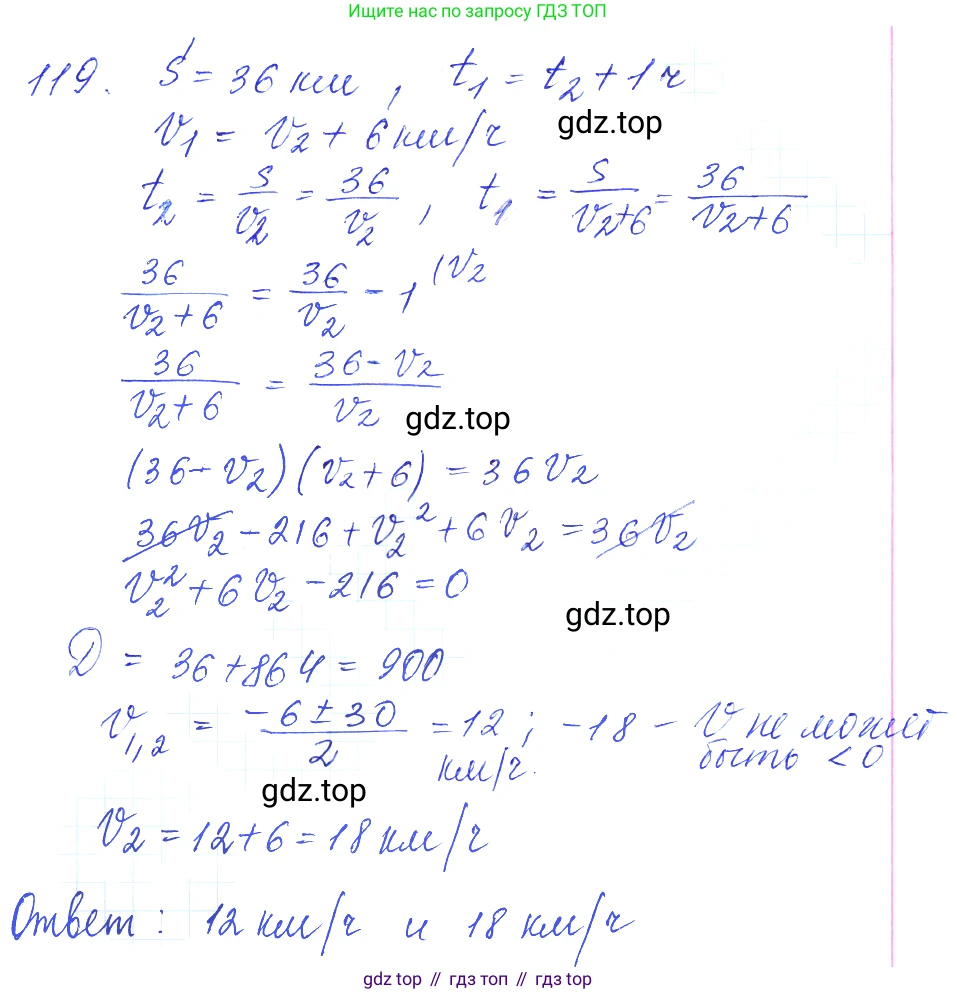 Ищите нас по запросу ГДЗ ТОП
119. S = 36 км, t₁ = t₂ + 1 ч
v₁ = v₂ + 6 км/ч
gdz.top
t₂ = s/v₂ = 36/v₂, t₁ = s/(v₂+6) = 36/(v₂+6)
36/(v₂+6) = 36/v₂ - 1 (v₂
36/(v₂+6) = (36-v₂)/v₂
gdz.top
(36-v₂)(v₂+6) = 36v₂
36v₂ - 216 + v₂² + 6v₂ = 36v₂
v₂² + 6v₂ - 216 = 0
gdz.top
D = 36 + 864 = 900
v₁,₂ = (-6 ± 30)/2 = 12 км/ч.; -18 - v не может быть < 0
gdz.top
v₂ = 12 + 6 = 18 км/ч
Ответ: 12 км/ч и 18 км/ч
gdz.top // гдз топ // gdz.top